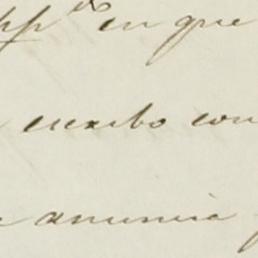 en que
escribo con
anuncia